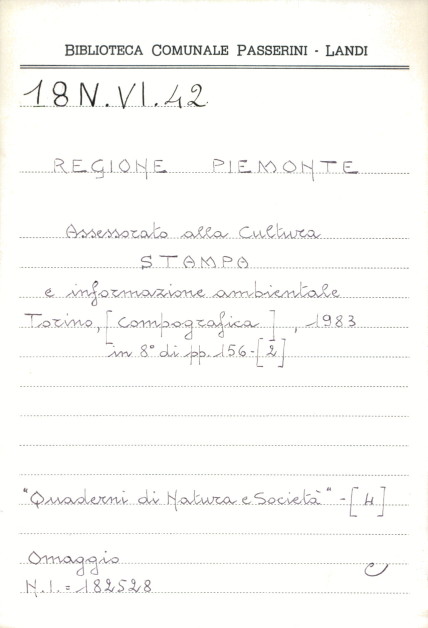 BIBLIOTECA COMUNALE PASSERINI - LANDI
18N.VI.42
REGIONE PIEMONTE
Assessorato alla Cultura
STAMPA
e informazione ambientale
Torino, [Compografica], 1983
in 8° di pp. 156-[2]
"Quaderni di Natura e Società" - [4]
Omaggio
N.I. = 182528